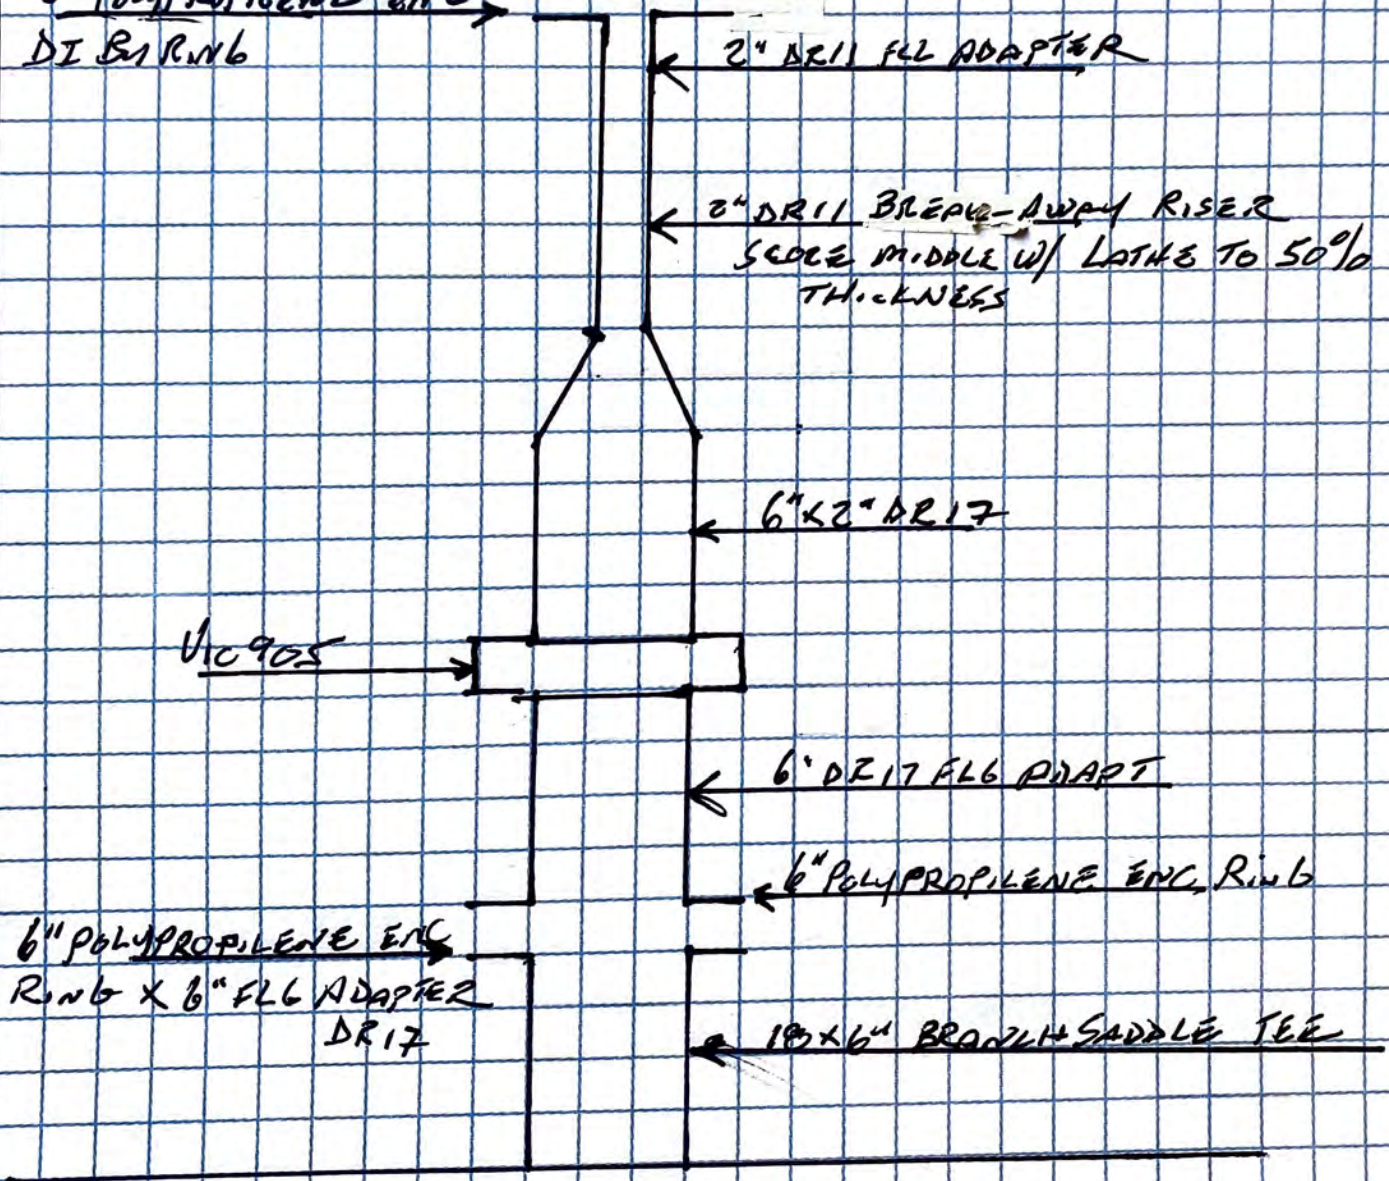 DI BU RING
2" DR11 FLG ADAPTER
2" DR11 BREAK-AWAY RISER
SCORE MIDDLE W/ LATHE TO 50%
THICKNESS
6"X2" DR17
VIC 905
6" DR17 FLG ADAPT
6" POLYPROPILENE ENC RING
6" POLYPROPILENE ENC
RING X 6" FLG ADAPTER
DR17
18X6" BRANCH SADDLE TEE